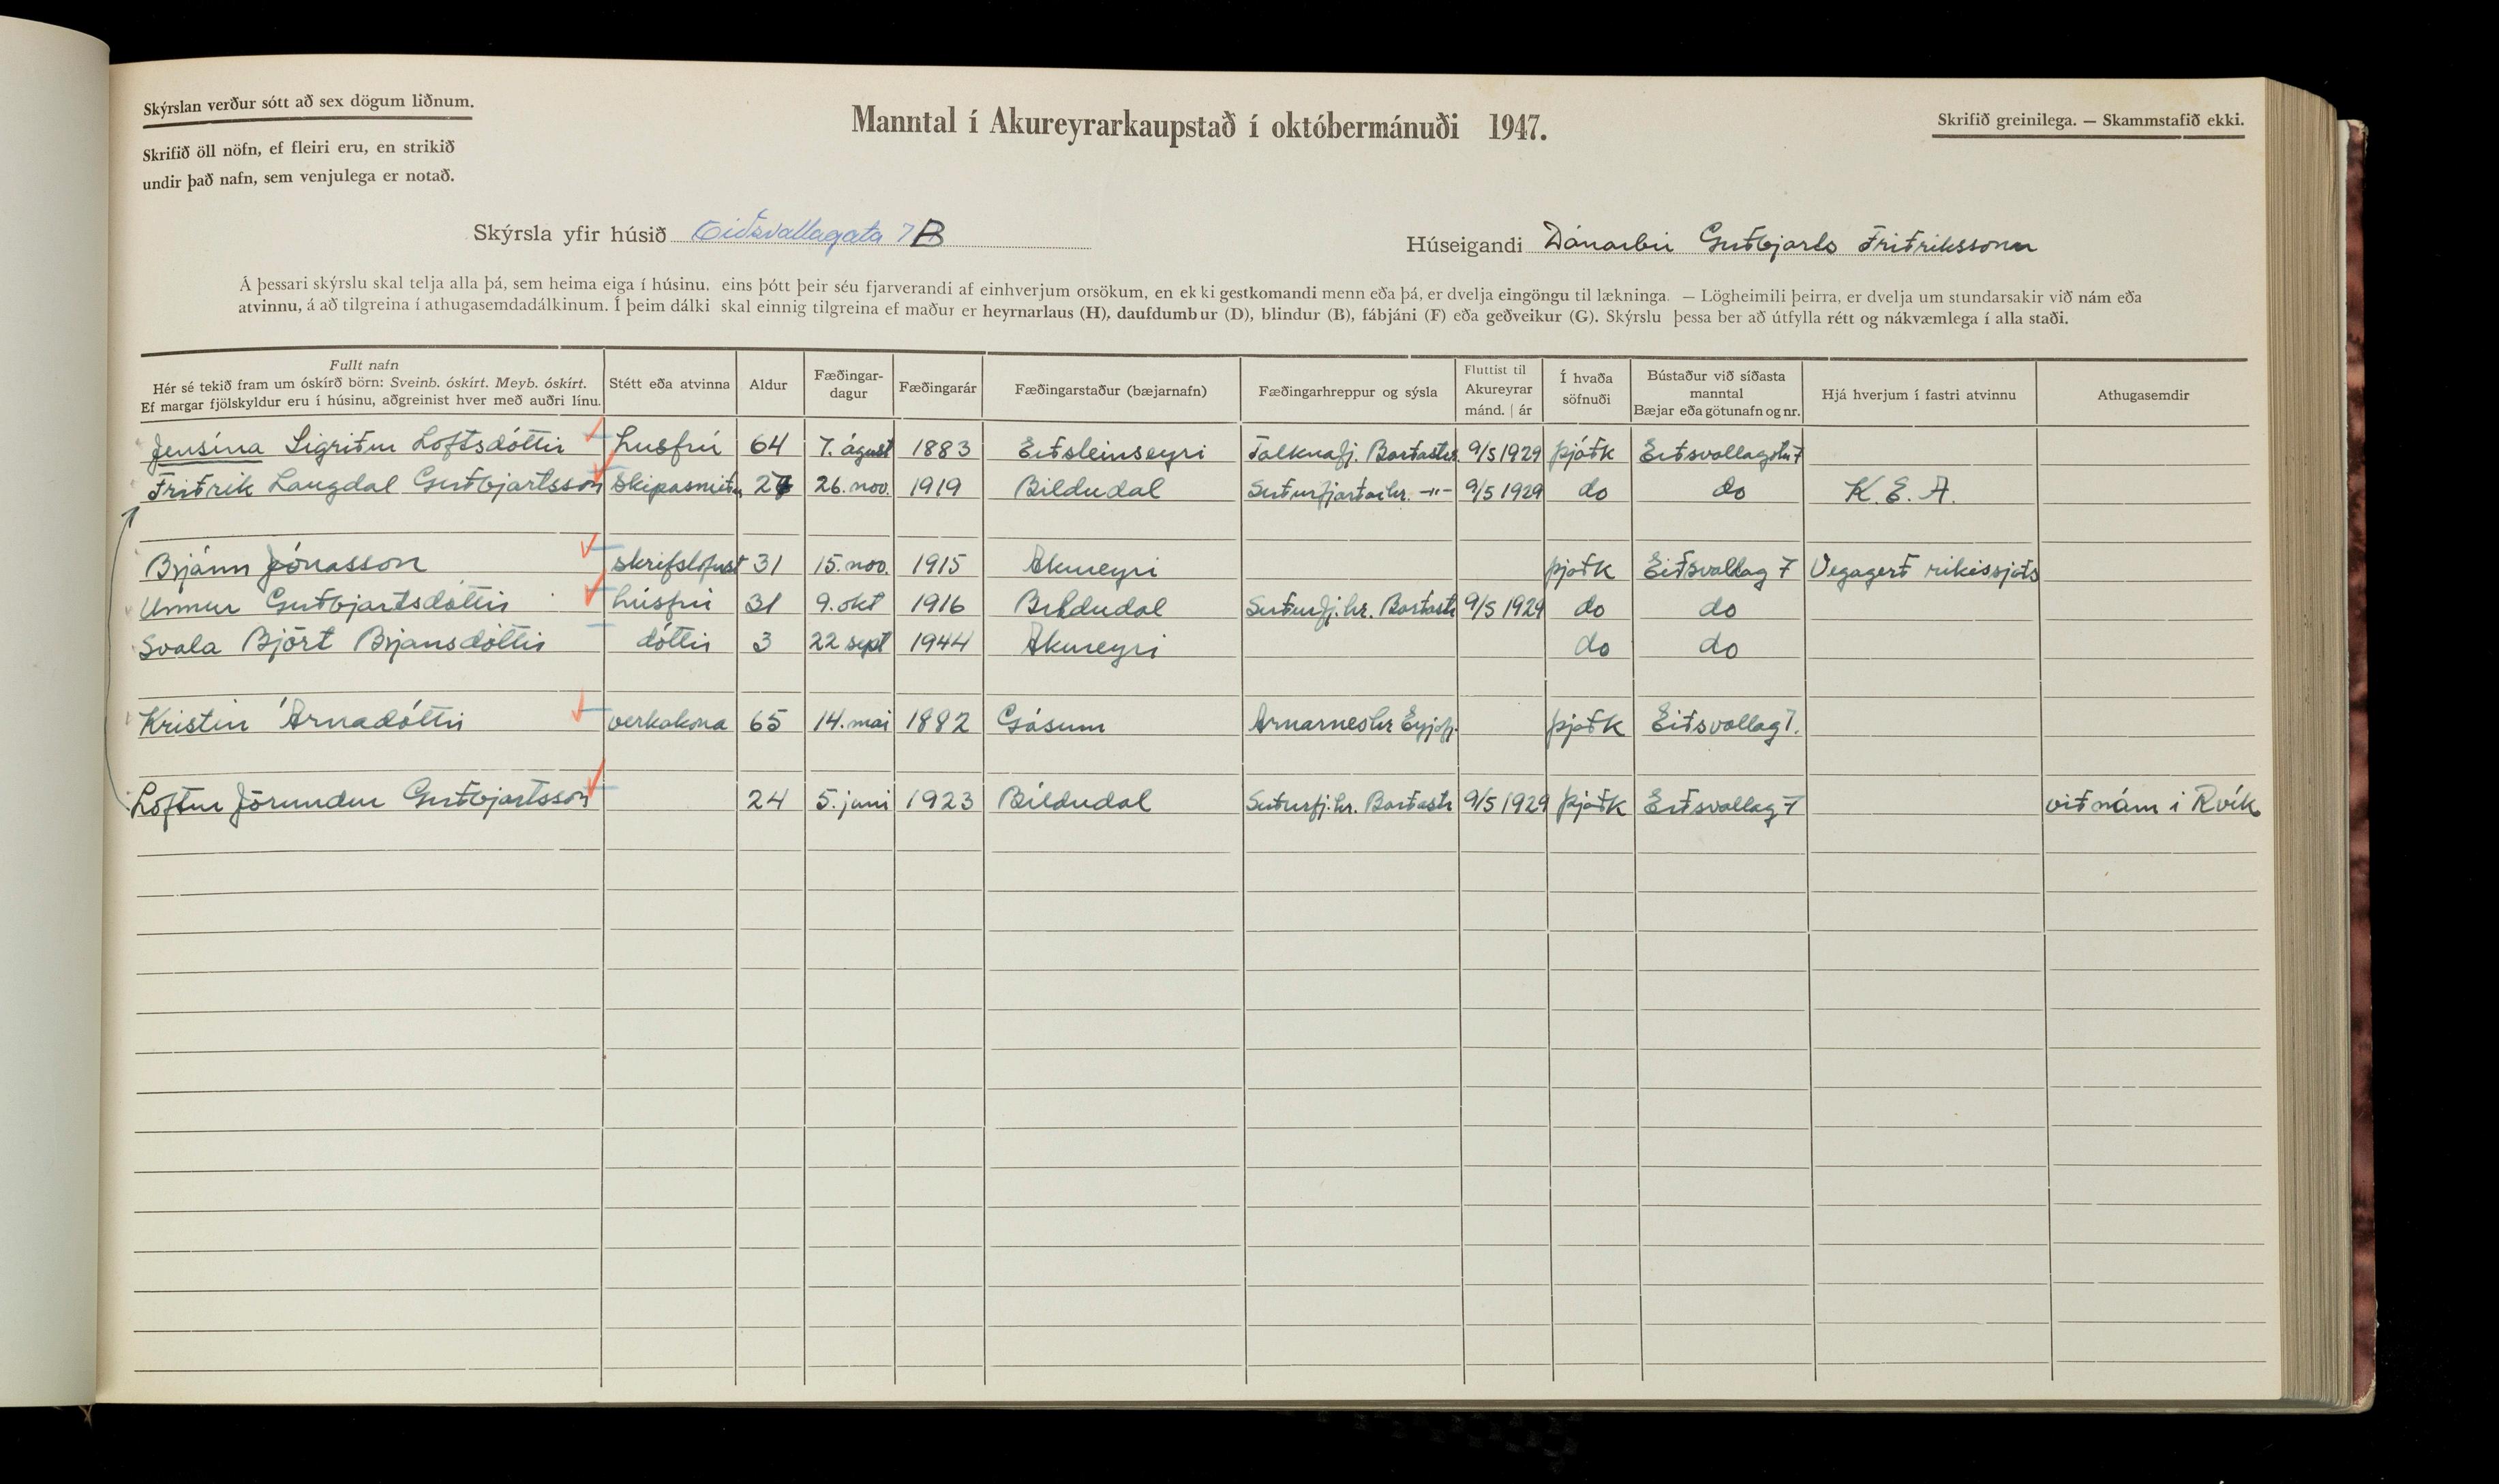 Skýrslan verður sótt að sex dögum liðnum.
Skrifið öll nöfn, ef fleiri eru, en strikið
undir það nafn, sem venjulega er notað.
Manntal í Akureyrarkaupstað í októbermánuði 1947.
Skrifið greinilega. — Skammstafið ekki.
Skýrsla yfir húsið Eiðsvallagata 7 B
Húseigandi Dánarbú Guðbjarts Friðrikssonar
Á þessari skýrslu skal telja alla þá, sem heima eiga í húsinu, eins þótt þeir séu fjarverandi af einhverjum orsökum, en ekki gestkomandi menn eða þá, er dvelja eingöngu til lækninga. — Lögheimili þeirra, er dvelja um stundarsakir við nám eða
atvinnu, á að tilgreina í athugasemdadálkinum. Í þeim dálki skal einnig tilgreina ef maður er heyrnarlaus (H), daufdumbur (D), blindur (B), fábjáni (F) eða geðveikur (G). Skýrslu þessa ber að útfylla rétt og nákvæmlega í alla staði.
Fullt nafn
Hér sé tekið fram um óskírð börn: Sveinb. óskírt. Meyb. óskírt.
Ef margar fjölskyldur eru í húsinu, aðgreinist hver með auðri línu.
Stétt eða atvinna
Aldur
Fæðingar-
dagur
Fæðingarár
Fæðingarstaður (bæjarnafn)
Fæðingarhreppur og sýsla
Fluttist til
Akureyrar
mánd. | ár
Í hvaða
söfnuði
Bústaður við síðasta
manntal
Bæjar eða götunafn og nr.
Hjá hverjum í fastri atvinnu
Athugasemdir
Jensína Sigriður Loftsdóttir húsfrú 64 7. ágúst 1883 Eiðsteinseyri Talknafj. Barðastr. 9/5 1929 þjóðk Eiðsvallagötu 7
Friðrik Laugdal Guðbjartsson Skipasmiður 27 26. nov. 1919 Bildudal Suðurfjarðarhr. -"- 9/5 1929 do do K. E. A.
Brjánn Jónasson skrifstofust 31 15. nov. 1915 Akureyri þjóðk Eiðsvallag 7 Vegagerð rikissjóts
Unnur Guðbjartsdóttir húsfrú 31 9. okt 1916 Bildudal Suðurfj.hr. Barðastr 9/5 1929 do do
Svala Björt Brjansdóttir dóttir 3 22 sept 1944 Akureyri do do
Kristin Árnadóttir verkakona 65 14. mai 1882 Gásum Arnarneshr Eyjafj. þjóðk Eiðsvallag 7.
Loftur Jörundur Guðbjartsson 24 5. juni 1923 Bíldudal Suðurfj.hr. Barðastr 9/5 1929 þjóðk Eiðsvallag 7 við nám i Rvík